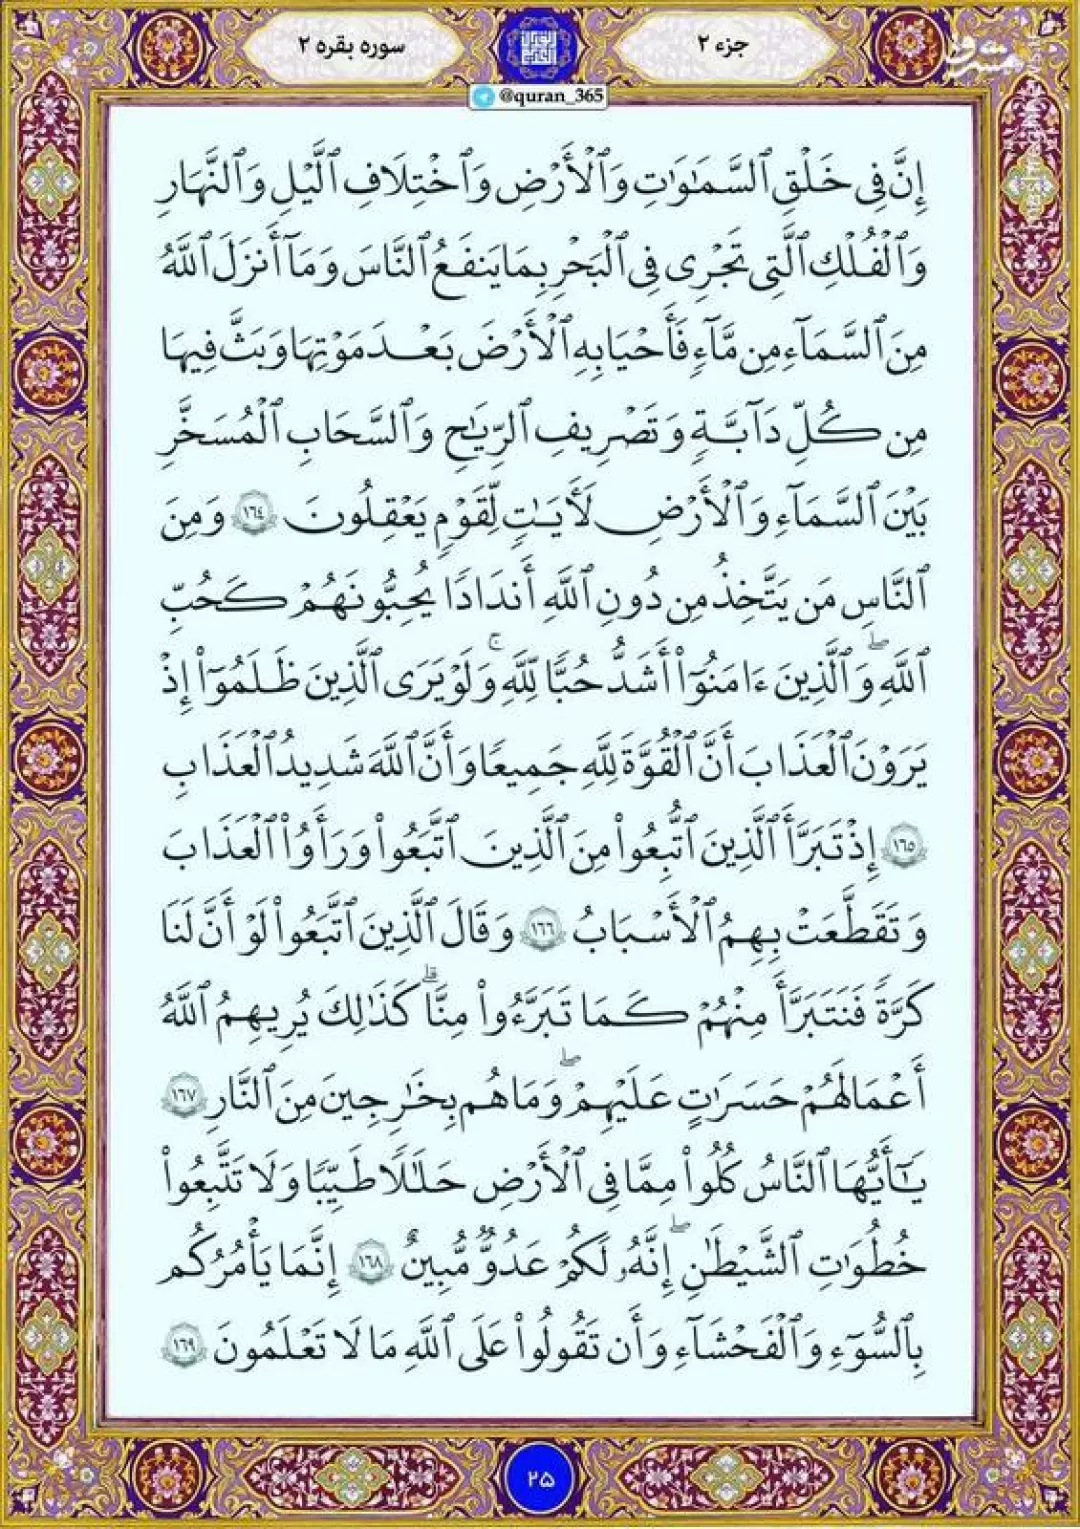 جزء ۲
سوره بقره ۲
@quran_365
مشرق
إِنَّ فِى خَلْقِ ٱلسَّمَـٰوَٰتِ وَٱلْأَرْضِ وَٱخْتِلَـٰفِ ٱلَّيْلِ وَٱلنَّهَارِ
وَٱلْفُلْكِ ٱلَّتِى تَجْرِى فِى ٱلْبَحْرِ بِمَا يَنفَعُ ٱلنَّاسَ وَمَآ أَنزَلَ ٱللَّهُ
مِنَ ٱلسَّمَآءِ مِن مَّآءٍ فَأَحْيَا بِهِ ٱلْأَرْضَ بَعْدَ مَوْتِهَا وَبَثَّ فِيهَا
مِن كُلِّ دَآبَّةٍ وَتَصْرِيفِ ٱلرِّيَـٰحِ وَٱلسَّحَابِ ٱلْمُسَخَّرِ
بَيْنَ ٱلسَّمَآءِ وَٱلْأَرْضِ لَـَٔايَـٰتٍ لِّقَوْمٍ يَعْقِلُونَ ١٦٤ وَمِنَ
ٱلنَّاسِ مَن يَتَّخِذُ مِن دُونِ ٱللَّهِ أَندَادًا يُحِبُّونَهُمْ كَحُبِّ
ٱللَّهِ ۖ وَٱلَّذِينَ ءَامَنُوٓا۟ أَشَدُّ حُبًّا لِّلَّهِ ۗ وَلَوْ يَرَى ٱلَّذِينَ ظَلَمُوٓا۟ إِذْ
يَرَوْنَ ٱلْعَذَابَ أَنَّ ٱلْقُوَّةَ لِلَّهِ جَمِيعًا وَأَنَّ ٱللَّهَ شَدِيدُ ٱلْعَذَابِ
١٦٥ إِذْ تَبَرَّأَ ٱلَّذِينَ ٱتُّبِعُوا۟ مِنَ ٱلَّذِينَ ٱتَّبَعُوا۟ وَرَأَوُا۟ ٱلْعَذَابَ
وَتَقَطَّعَتْ بِهِمُ ٱلْأَسْبَابُ ١٦٦ وَقَالَ ٱلَّذِينَ ٱتَّبَعُوا۟ لَوْ أَنَّ لَنَا
كَرَّةً فَنَتَبَرَّأَ مِنْهُمْ كَمَا تَبَرَّءُوا۟ مِنَّا ۗ كَذَٰلِكَ يُرِيهِمُ ٱللَّهُ
أَعْمَـٰلَهُمْ حَسَرَٰتٍ عَلَيْهِمْ ۖ وَمَا هُم بِخَـٰرِجِينَ مِنَ ٱلنَّارِ ١٦٧
يَـٰٓأَيُّهَا ٱلنَّاسُ كُلُوا۟ مِمَّا فِى ٱلْأَرْضِ حَلَـٰلًا طَيِّبًا وَلَا تَتَّبِعُوا۟
خُطُوَٰتِ ٱلشَّيْطَـٰنِ ۚ إِنَّهُۥ لَكُمْ عَدُوٌّ مُّبِينٌ ١٦٨ إِنَّمَا يَأْمُرُكُم
بِٱلسُّوٓءِ وَٱلْفَحْشَآءِ وَأَن تَقُولُوا۟ عَلَى ٱللَّهِ مَا لَا تَعْلَمُونَ ١٦٩
۲۵